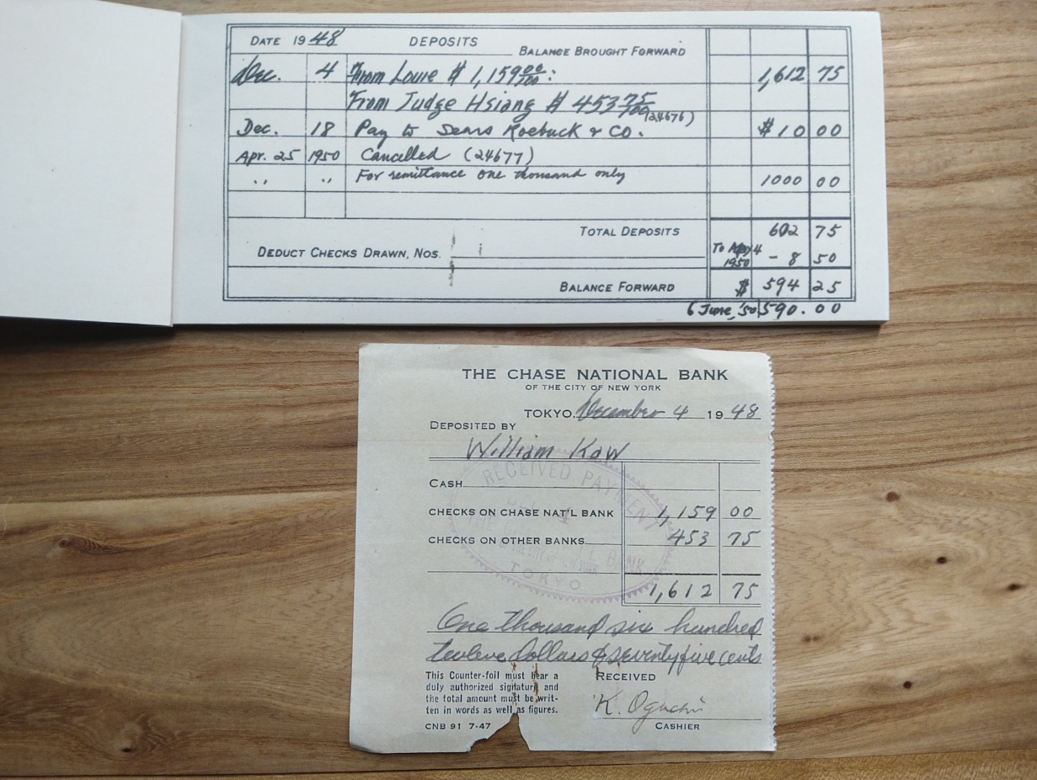 DATE 1948 DEPOSITS BALANCE BROUGHT FORWARD
Dec. 4 From Louie $ 1,159 00/100: 1,612 75
From Judge Hsiang $ 453 75/100
(24676)
Dec. 18 Pay to Sears Roebuck & Co. $10 00
Apr. 25 1950 Cancelled (24677)
" " For remittance one thousand only 1000 00
TOTAL DEPOSITS 602 75
DEDUCT CHECKS DRAWN, NOS. To May 4 1950 - 8 50
BALANCE FORWARD $ 594 25
6 June, '50 590.00
THE CHASE NATIONAL BANK
OF THE CITY OF NEW YORK
TOKYO, December 4 1948
DEPOSITED BY
William Kaw
CASH
CHECKS ON CHASE NAT'L BANK 1,159 00
CHECKS ON OTHER BANKS 453 75
1,612 75
RECEIVED PAYMENT
TOKYO
One thousand six hundred
twelve Dollars & seventy five cents
This Counter-foil must bear a
duly authorized signature and
the total amount must be writ-
ten in words as well as figures.
RECEIVED
K. Oguchi
CNB 91 7-47 CASHIER